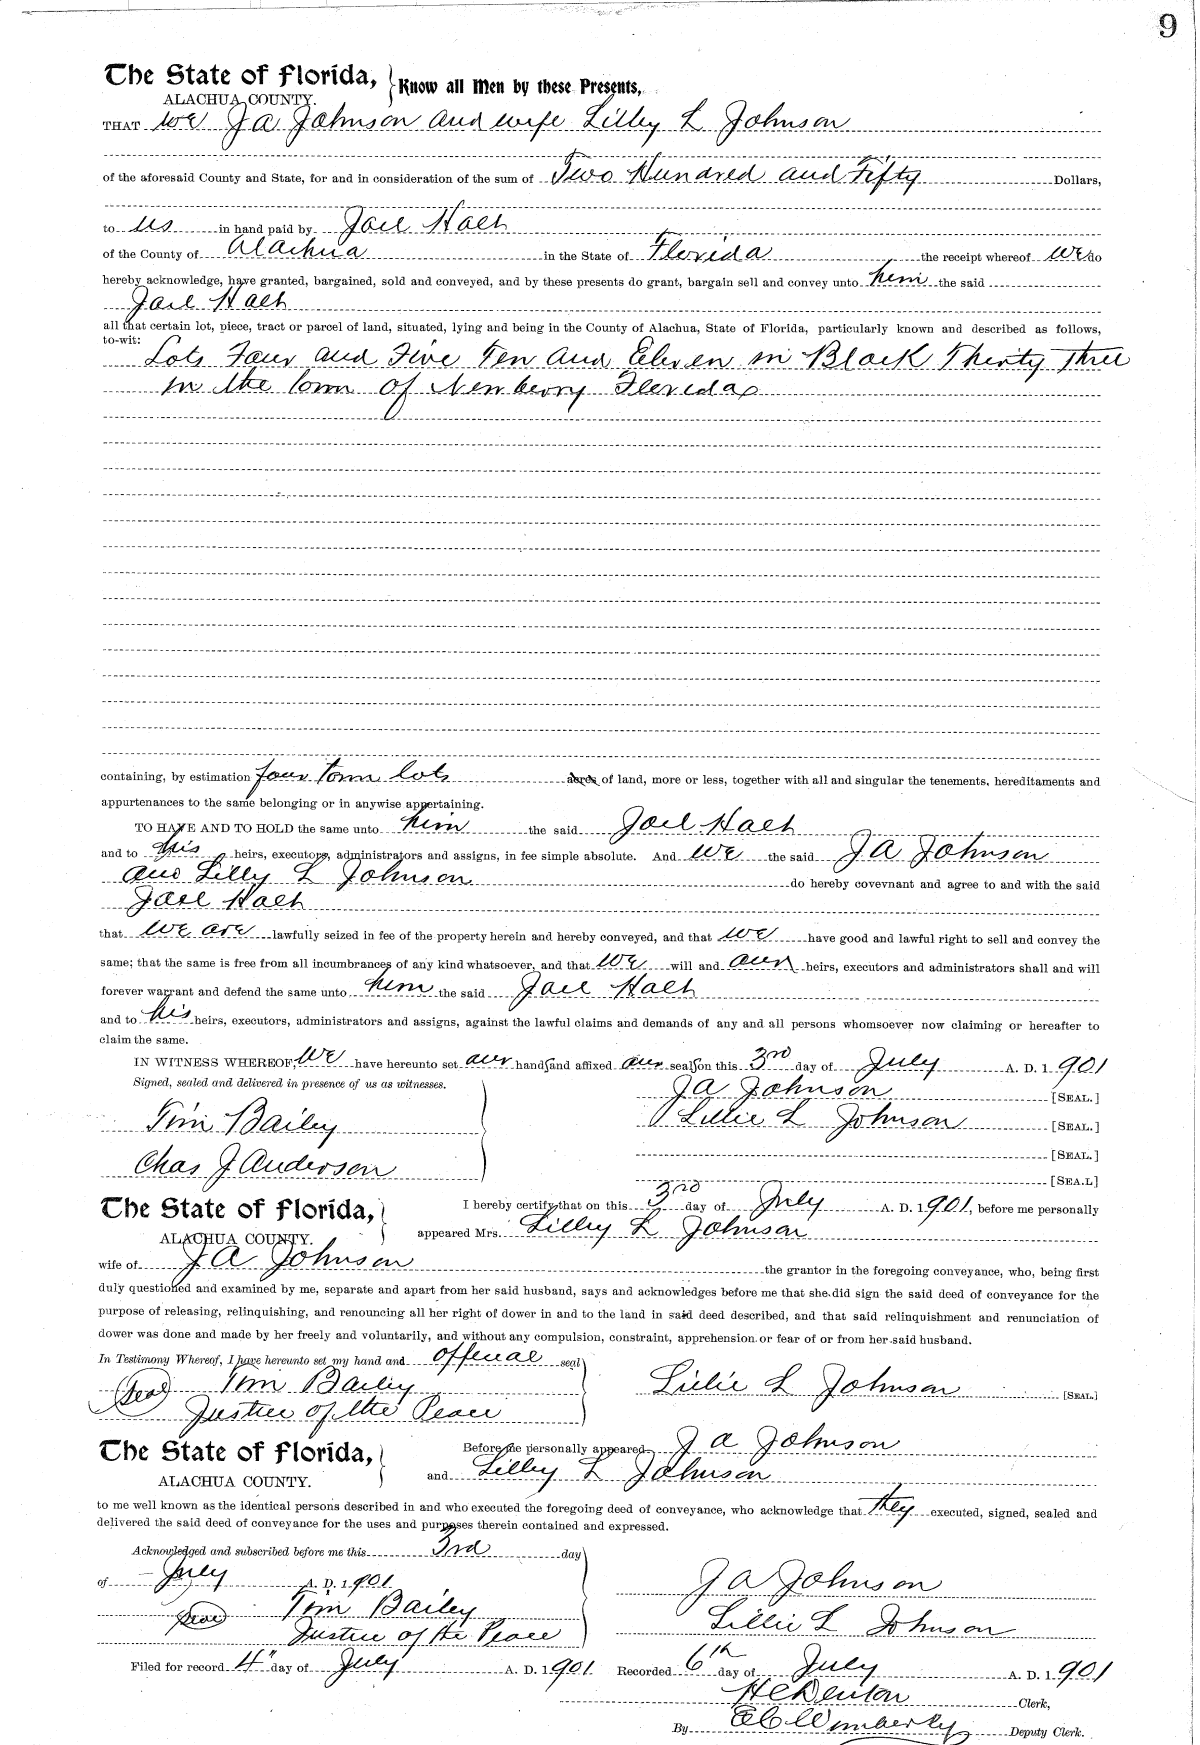 9
The State of Florida, Know all Men by these Presents,
ALACHUA COUNTY.
THAT we J A Johnson and wife Lilley L Johnson
of the aforesaid County and State, for and in consideration of the sum of Two Hundred and Fifty Dollars,
to us in hand paid by
of the County of Alachua in the State of Florida the receipt whereof we do
hereby acknowledge, have granted, bargained, sold and conveyed, and by these presents do grant, bargain sell and convey unto him the said
all that certain lot, piece, tract or parcel of land, situated, lying and being in the County of Alachua, State of Florida, particularly known and described as follows,
to-wit:
Lots Four and Five Ten and Eleven in Block Thirty Three
in the town of Newberry Florida
containing, by estimation four town lots acres of land, more or less, together with all and singular the tenements, hereditaments and
appurtenances to the same belonging or in anywise appertaining.
TO HAVE AND TO HOLD the same unto him the said
and to his heirs, executors, administrators and assigns, in fee simple absolute. And we the said J A Johnson
and Lilly L Johnson do hereby covevnant and agree to and with the said
that we are lawfully seized in fee of the property herein and hereby conveyed, and that we have good and lawful right to sell and convey the
same; that the same is free from all incumbrances of any kind whatsoever, and that we will and our heirs, executors and administrators shall and will
forever warrant and defend the same unto him the said
and to his heirs, executors, administrators and assigns, against the lawful claims and demands of any and all persons whomsoever now claiming or hereafter to
claim the same.
IN WITNESS WHEREOF, we have hereunto set our hands and affixed our seals on this 3rd day of July A. D. 1901
Signed, sealed and delivered in presence of us as witnesses. J A Johnson [SEAL.]
Tim Bailey Lillie L Johnson [SEAL.]
[SEAL.]
Chas J Anderson [SEA.L]
The State of Florida, I hereby certify that on this 3rd day of July A. D. 1901, before me personally
ALACHUA COUNTY. appeared Mrs. Lilley L Johnson
wife of J A Johnson the grantor in the foregoing conveyance, who, being first
duly questioned and examined by me, separate and apart from her said husband, says and acknowledges before me that she did sign the said deed of conveyance for the
purpose of releasing, relinquishing, and renouncing all her right of dower in and to the land in said deed described, and that said relinquishment and renunciation of
dower was done and made by her freely and voluntarily, and without any compulsion, constraint, apprehension or fear of or from her said husband.
In Testimony Whereof, I have hereunto set my hand and official seal
Seal Tim Bailey Lillie L Johnson [SEAL.]
Justice of the Peace
The State of Florida, Before me personally appeared J A Johnson
ALACHUA COUNTY. and Lilley L Johnson
to me well known as the identical persons described in and who executed the foregoing deed of conveyance, who acknowledge that they executed, signed, sealed and
delivered the said deed of conveyance for the uses and purposes therein contained and expressed.
Acknowledged and subscribed before me this 3rd day
of July A. D. 1901 J A Johnson
Seal Tim Bailey Lillie L Johnson
Justice of the Peace
Filed for record 4" day of July A. D. 1901 Recorded 6th day of July A. D. 1901
H C Denton Clerk,
By E C Wimberly Deputy Clerk.